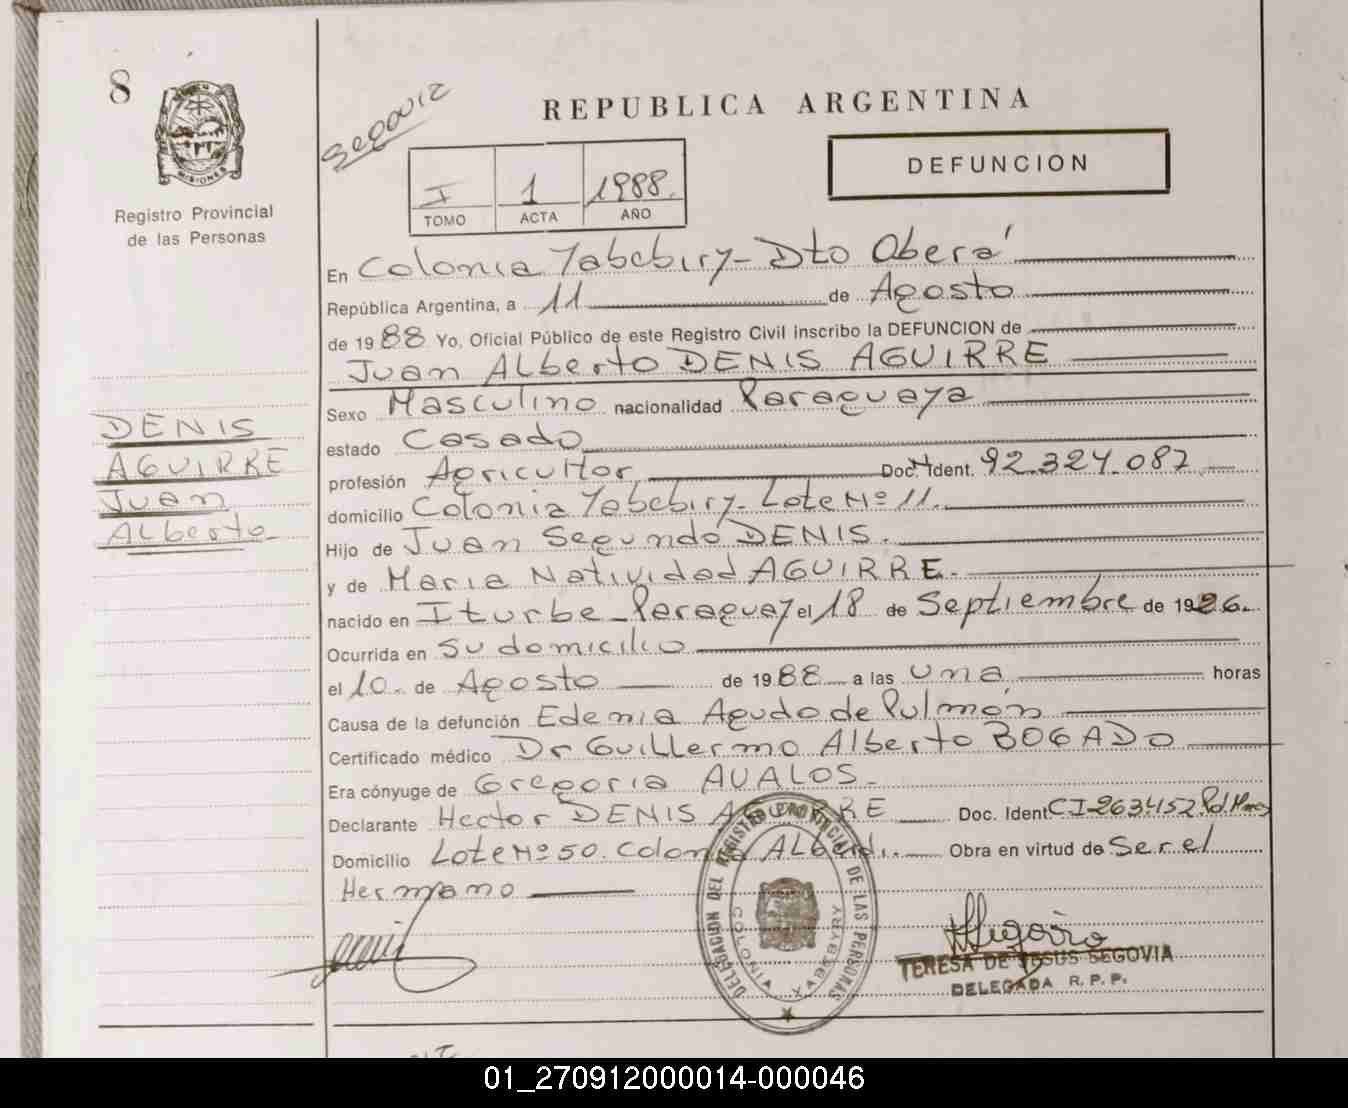 8
MISIONES
Registro Provincial
de las Personas
DENIS
AGUIRRE
Juan
Alberto
REPUBLICA ARGENTINA
I 1 1988.
TOMO ACTA AÑO
DEFUNCION
En Colonia Yabebiry - Dto Oberá
República Argentina, a 11 de Agosto
de 1988 Yo, Oficial Público de este Registro Civil inscribo la DEFUNCION de
Juan Alberto DENIS AGUIRRE
Sexo Masculino nacionalidad Paraguaya
estado Casado
profesión Agricultor Doc. Ident. 92.324.087
domicilio Colonia Yabebiry - Lote Nº 11.
Hijo de Juan Segundo DENIS.
y de Maria Natividad AGUIRRE.
nacido en Iturbe - Paraguay el 18 de Septiembre de 1926.
Ocurrida en Su domicilio
el 10. de Agosto de 1988 a las una horas
Causa de la defunción Edemia Agudo de Pulmón
Certificado médico Dr Guillermo Alberto BOGADO
Era cónyuge de Gregoria AVALOS -
Declarante Hector DENIS AGUIRRE Doc. Ident CI-263.452 Pol. Mnes
Domicilio Lote Nº 50. Colonia Alberdi. Obra en virtud de Ser el
Hermano
DELEGACION DEL REGISTRO PROVINCIAL DE LAS PERSONAS
COLONIA YABEBYRY
TERESA DE JESUS SEGOVIA
DELEGADA R.P.P.
01_270912000014-000046